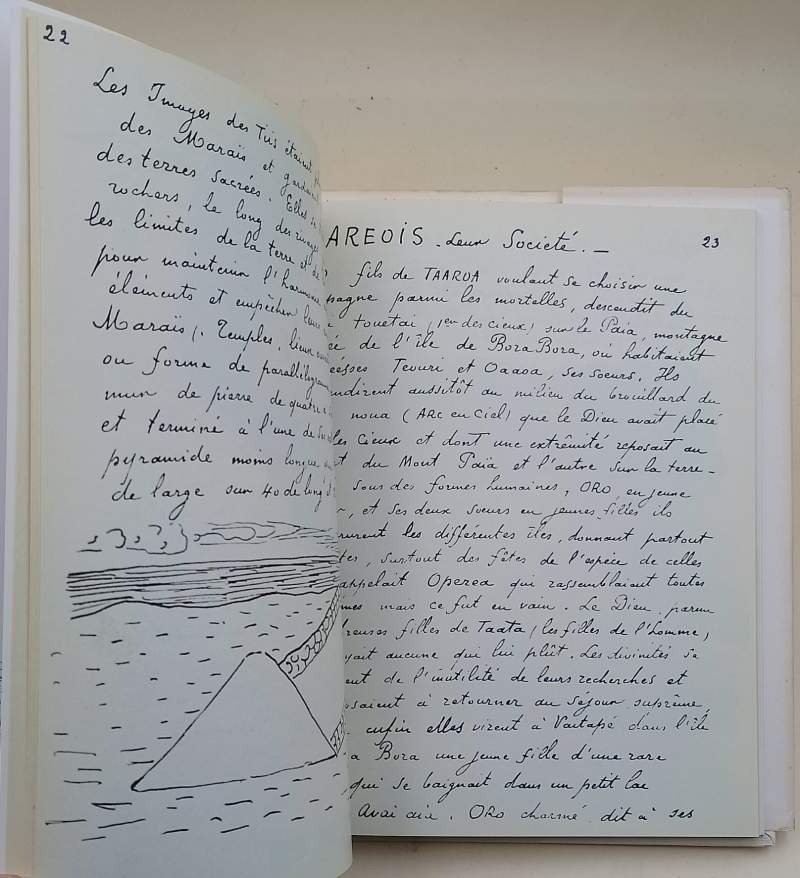 22
Les Images des Tiis étaient
des Maraïs et
des terres sacrées. Elles
rochers, le long des rivages
les limites de la terre et de
pour maintenir l'harmonie
éléments et empêcher leurs
Maraïs (. Temples, lieux
ou forme de parallélogramme
mur de pierre de quatre
et terminé à l'une de ses
pyramide moins longue
de large sur 40 de long
AREOIS - Leur Societé. -
23
fils de TAAROA voulant se choisir une
pagne parmi les mortelles, descendit du
touetai (1er des cieux) sur le Paia, montagne
ée de l'île de Bora Bora, où habitaient
éesses Teouri et Oaaoa, ses soeurs. Ils
ndirent aussitôt au milieu du brouillard du
noua (ARC en Ciel) que le Dieu avait placé
les Cieux et dont une extrêmité reposait au
t du Mont Païa et l'autre sur la terre -
sous des formes humaines, ORO, en jeune
, et ses deux soeurs en jeunes filles ils
rurent les différentes îles, donnant partout
tes, surtout des fêtes de l'espèce de celles
appelait Operea qui rassemblaient toutes
mes mais ce fut en vain. Le Dieu parmi
breuses filles de Taata (les filles de l'homme)
yait aucune qui lui plût. Les divinités se
ent de l'inutilité de leurs recherches et
saient à retourner au séjour suprême,
enfin elles virent à Vaitapé dans l'île
a Bora une jeune fille d'une rare
qui se baignait dans un petit lac
Avai aia. ORO charmé dit à ses